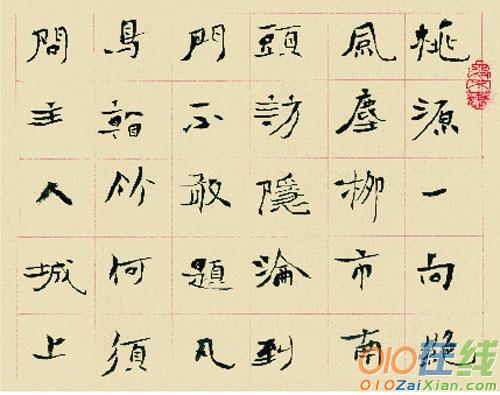 桃源一向絕
風塵柳市南
頭訪隱淪到
門不敢題凡
鳥看竹何須
問主人城上
010在线
010ZaiXian.com